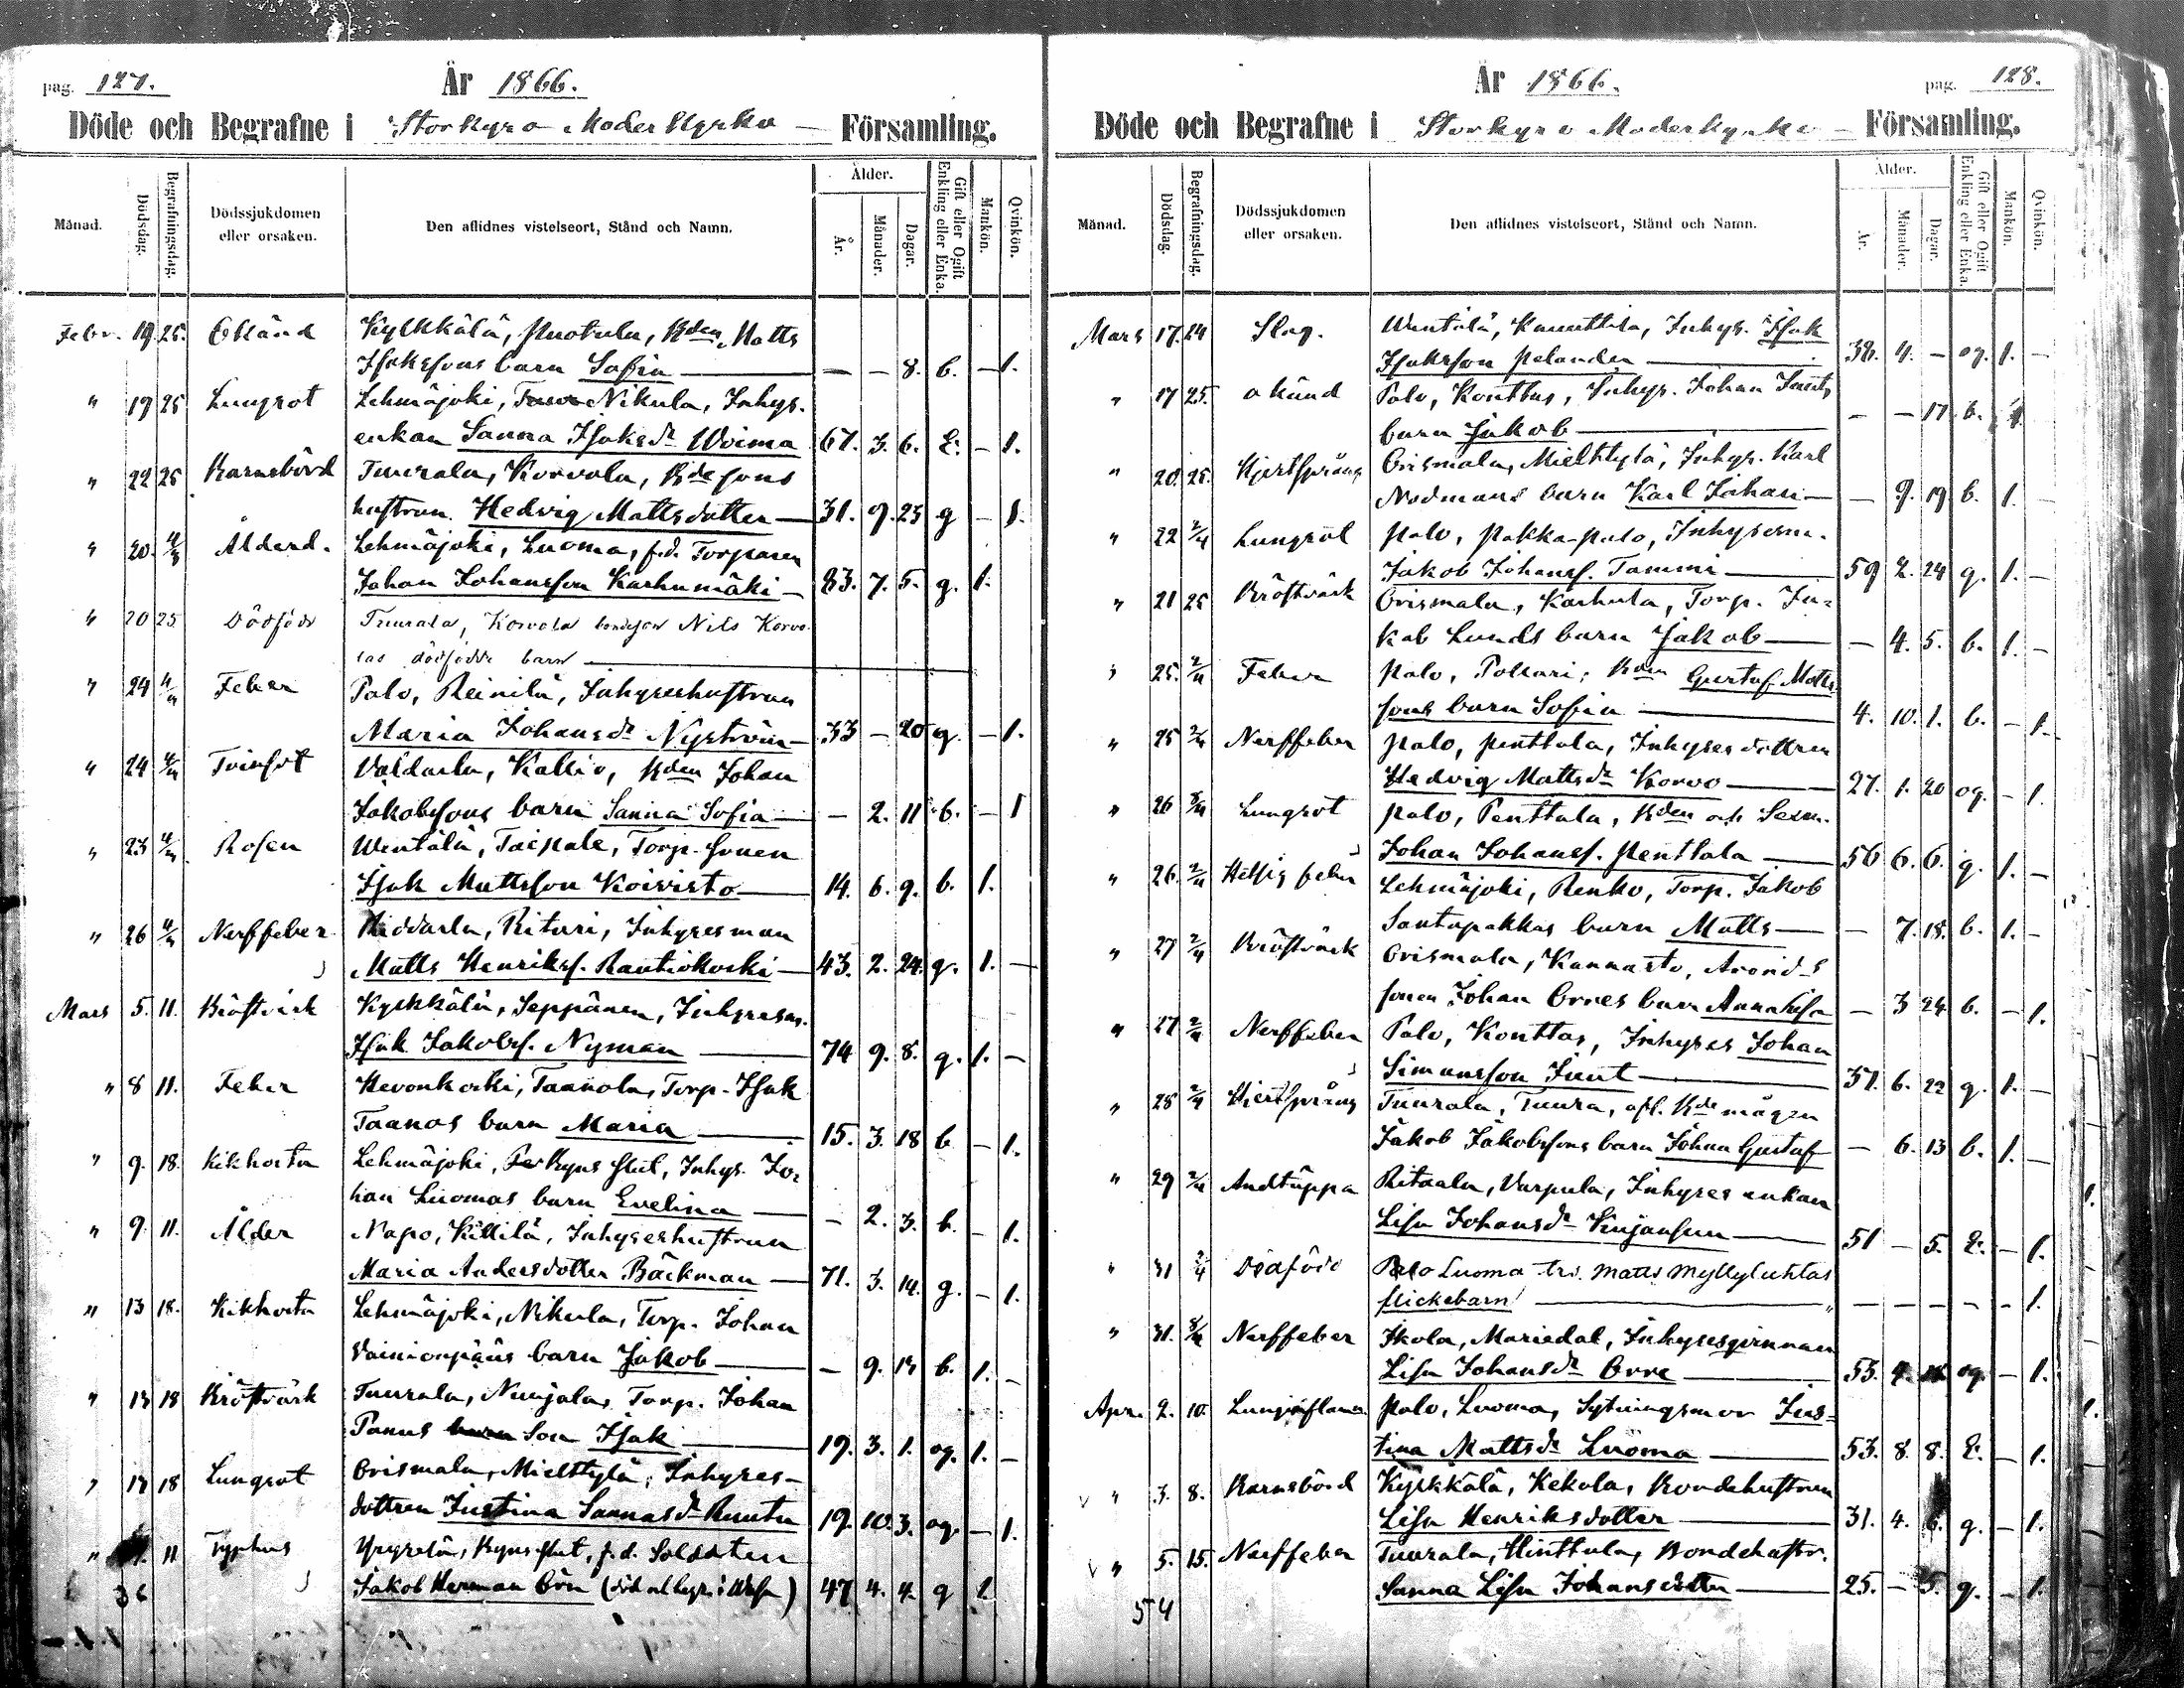 pag. 127.
År 1866.
Döde och Begrafne i Storkyro Moderkyrko — Församling.
Månad. Dödsdag. Begrafningsdag. Dödssjukdomen eller orsaken. Den aflidnes vistelseort, Stånd och Namn. Ålder. År. Månader. Dagar. Gift eller Ogift Enkling eller Enka. Mankön. Qvinkön.
Febr. 19. 25. Okänd Kylkkälä, Puotula, Bden Matts
Isakssons barn Sofia — — — 8. b. — 1.
" 19 25 Lungsot Lehmäjoki, Nikula, Inhys.
enkan Sanna Isaksdr Woima 67. 3. 6. E. — 1.
" 22 25 Barnsbörd Tuurala, Korvola, Bde sons
hustrun Hedvig Mattsdotter — 31. 9. 23 g — 1.
" 20. 4/3 Ålderd. Lehmäjoki, Luoma, f.d. Torparen
Johan Johansson Karhumäki — 83. 7. 5. g. 1.
" 20 25 Dödfödd Tuurala, Korvola bondeson Nils Korvo-
las dödfödda barn —
" 24 4/3 Feber Palo, Reinilä, Inhyseshustrun
Maria Johansdr Nyström — 33 — 20 g. — 1.
" 24 4/3 Tvinsot Valdarla, Kallio, Bden Johan
Jakobssons barn Sanna Sofia — — 2. 11 b. — 1
" 23 4/3 Rosen Wentälä, Taipale, Torp. sonen
Isak Mattsson Koivisto — 14. 6. 9. b. 1.
" 26 4/3 Nerffeber Hiddarla, Rituri, Inhysesman
Matts Henrikss. Rautiokoski — 43. 2. 24. g. 1. —
Mars 5. 11. Bröstvärk Kyrkkälä, Seppänen, Inhysesm.
Isak Jakobss. Nyman — 74 9. 8. g. 1. —
" 8 11. Feber Hevonkoski, Taanola, Torp. Isak
Taanos barn Maria — 15. 3. 18 b — 1.
" 9. 18. Kikhosta Lehmäjoki, Inhys. Jo-
han Luomas barn Evelina — — 2. 3. b. — 1.
" 9. 11. Ålder Napo, Kittilä, Inhyseshustrun
Maria Andersdotter Bäckman — 71. 3. 14. g. — 1.
" 13 18. Kikhosta Lehmäjoki, Nikula, Torp. Johan
Vainionpääs barn Jakob — — 9. 13 b. 1. —
" 13 18 Bröstvärk Tuurala, Nuujala, Torp. Johan
Panus barn Son Isak — 19. 3. 1. og. 1. —
" 13 18 Lungsot Orismala, Mielttylä, Inhyses-
dottren Justina Sannasdr Ruutu 19. 10. 3. og. — 1.
" 11 Typhus f.d. Soldaten
Jakob Herman Örn (död och begr. i Wasa) 47 4. 4. g 1
36
År 1866.
pag. 128.
Döde och Begrafne i Storkyro Moderkyrko — Församling.
Månad. Dödsdag. Begrafningsdag. Dödssjukdomen eller orsaken. Den aflidnes vistelseort, Stånd och Namn. Ålder. År. Månader. Dagar. Gift eller Ogift Enkling eller Enka. Mankön. Qvinkön.
Mars 17. 24 Slag. Wentälä, Knuuttila, Inhys. Isak
Isaksson Pelander — 38. 4. — og. 1. —
" 17 25. okänd Palo, Konttas, Inhys. Johan Juuts
barn Jakob — — — 17. b. 1
" 20. 25. Hjertsprång Orismala, Mielttylä, Inhys. Karl
Nodmans barn Karl Johan — — 9. 19 b. 1. —
" 22 2/4 Lungsot Palo, Pakka-palo, Inhysesm.
Jakob Johanss. Tammi — 59 2. 24 g. 1. —
" 21 25 Bröstvärk Orismala, Karhula, Torp. Ja-
kob Lunds barn Jakob — — 4. 5. b. 1. —
" 25. 2/4 Feber Palo, Pollari, Bden Gustaf Matts-
sons barn Sofia — 4. 10. 1. b. — 1.
" 25 2/4 Nerffeber Palo, Penttala, Inhysesdottren
Hedvig Mattsdr Korvo — 27. 1. 20 og. — 1.
" 26 8/4 Lungsot Palo, Penttala, Bden och Sexm.
Johan Johanss. Penttala — 56 6. 6. g. 1. —
" 26. 2/4 Hetsig feber Lehmäjoki, Renko, Torp. Jakob
Santapakkas barn Matts — — 7. 18. b. 1. —
" 27 2/4 Bröstvärk Orismala, Kannasto, Arond-s
sonen Johan Orres barn Anna Lisa — 3 24 b. — 1.
" 27 2/4 Nerffeber Palo, Konttas, Inhyses Johan
Simonsson Juut — 37. 6. 22 g. 1. —
" 28 2/4 Hjertsprång Tuurala, Tuura, afl. Bde mågen
Jakob Jakobssons barn Johan Gustaf — 6. 13 b. 1. —
" 29 2/4 Andtäppa Ritaala, Varpula, Inhyses enkan
Lisa Johansdr Kujansuu — 51 — 5. E. — 1.
" 31 2/4 Dödfödd Palo Luoma trd. Matts Myllyluhtas
flickebarn — " — — — — — 1.
" 31. 8/4 Nerffeber Ikola, Mariedal, Inhysesqvinnan
Lisa Johansdr Orre — 53. og. — 1.
Apr. 2. 10. Lunginflam. Palo, Luoma, Sytningsmor Jus-
tina Mattsdr Luoma — 53. 8. 8. E. — 1.
" 3. 8. Barnsbörd Kyrkkälä, Kekola, Bondehustrun
Lisa Henriksdotter — 31. 4. 6. g. — 1.
" 5. 15. Nerffeber Tuurala, Hinttula, Bondehustr.
Sanna Lisa Johansdotter — 25. — 5. g. — 1.
54